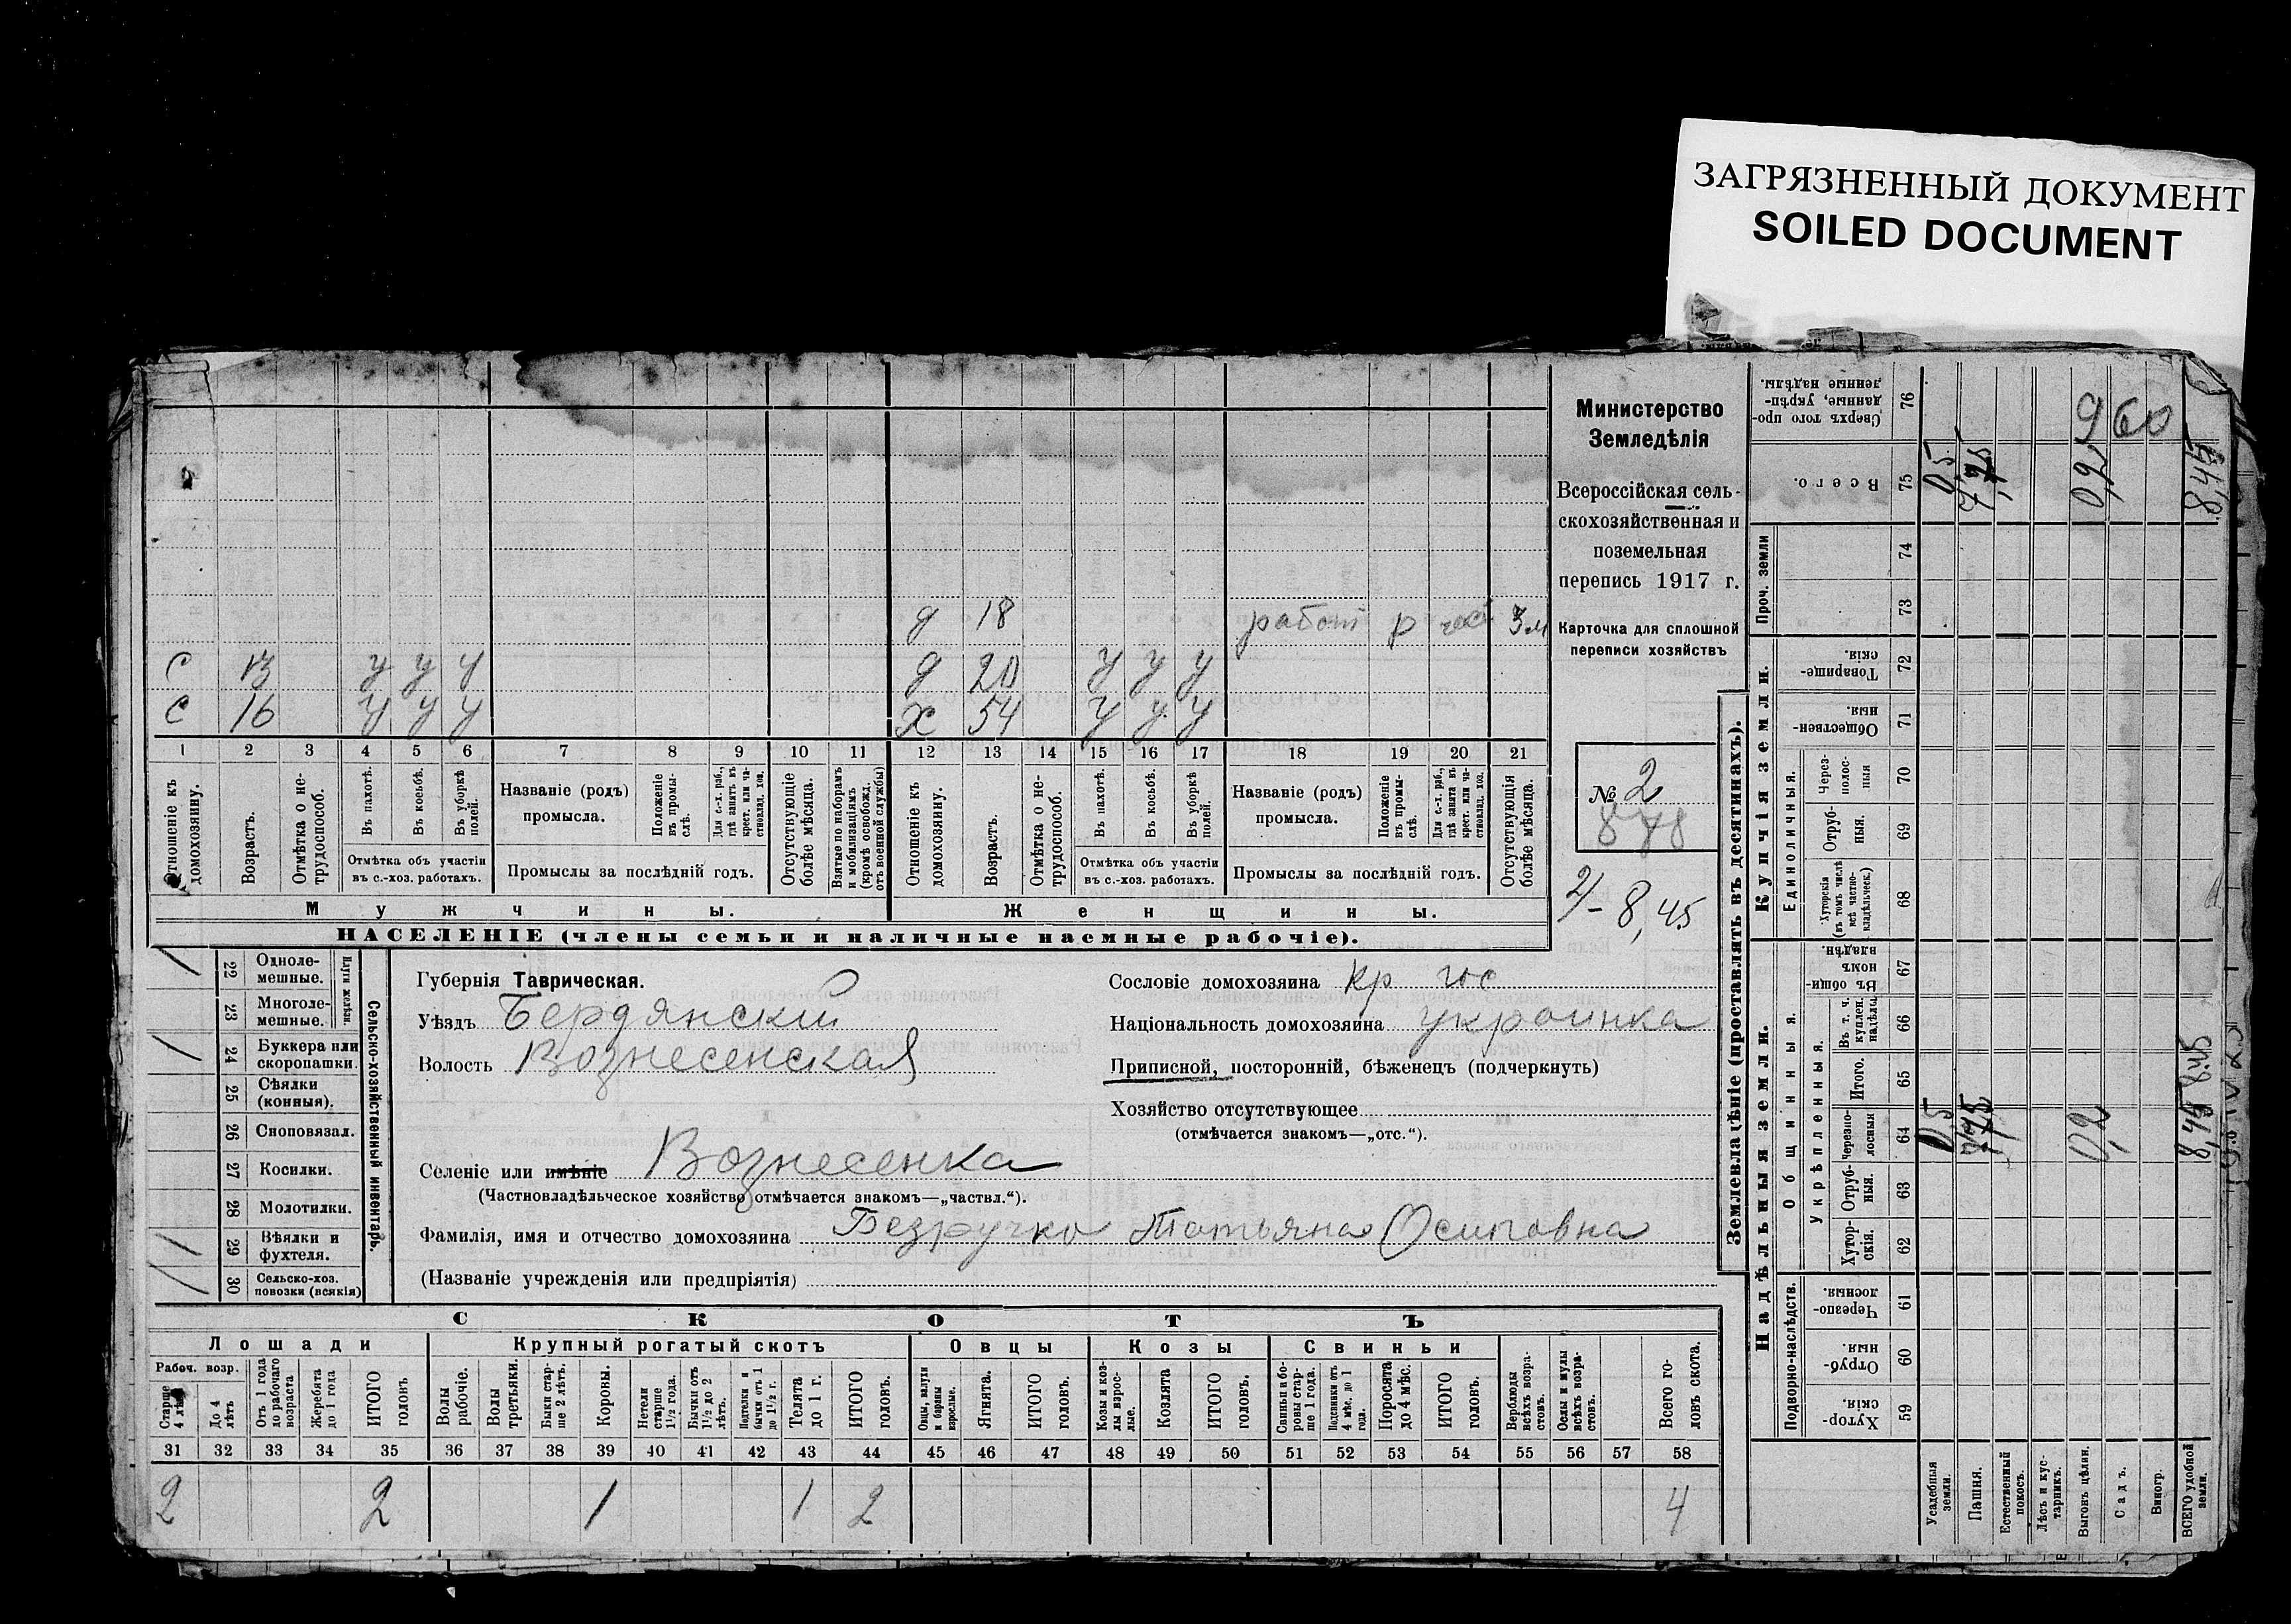 ЗАГРЯЗНЕННЫЙ ДОКУМЕНТ
SOILED DOCUMENT
Министерство
Земледѣлія
Всероссійская сель-
скохозяйственная и
поземельная
перепись 1917 г.
Карточка для сплошной
переписи хозяйствъ
№ 2
878
8,45
д 18 работ р 3 м
с 13 у у у д 20 у у у
с 16 у у у х 54 у у у
1 2 3 4 5 6 7 8 9 10 11 12 13 14 15 16 17 18 19 20 21
Отношеніе къ домохозяину.
Возрастъ.
Отмѣтка о не-трудоспособ.
Въ пахотѣ.
Въ косьбѣ.
Въ уборкѣ полей.
Отмѣтка объ участіи
въ с.-хоз. работахъ.
Названіе (родъ)
промысла.
Положеніе въ промы-слѣ.
Для с.-х. раб., гдѣ занятъ въ крест. или ча-стновлад. хоз.
Промыслы за послѣдній годъ.
Отсутствующіе болѣе мѣсяца.
Взятые по наборамъ и мобилизаціямъ (кромѣ освобожд. отъ военной службы)
Отношеніе къ домохозяину.
Возрастъ.
Отмѣтка о не-трудоспособ.
Въ пахотѣ.
Въ косьбѣ.
Въ уборкѣ полей.
Отмѣтка объ участіи
въ с.-хоз. работахъ.
Названіе (родъ)
промысла.
Положеніе въ промы-слѣ.
Для с.-х. раб., гдѣ занята въ крест. или ча-стновлад. хоз.
Промыслы за послѣдній годъ.
Отсутствующія болѣе мѣсяца.
Мужчины. Женщины.
НАСЕЛЕНІЕ (члены семьи и наличные наемные рабочіе).
Сельско-хозяйственный инвентарь.
Плуги желѣзн.
1 22 Одноле-мешные.
23 Многоле-мешные.
1 24 Буккера или скоропашки.
25 Сѣялки (конныя).
26 Сноповязал.
27 Косилки.
28 Молотилки.
1 29 Вѣялки и фухтеля.
1 30 Сельско-хоз. повозки (всякія)
Губернія Таврическая.
Уѣздъ Бердянскій
Волость Вознесенская
Селеніе или имѣніе Вознесенка
(Частновладѣльческое хозяйство отмѣчается знакомъ—„частвл.“).
Фамилія, имя и отчество домохозяина Безручко Татьяна Осиповна
(Названіе учрежденія или предпріятія)
Сословіе домохозяина кр гос
Національность домохозяина украинка
Приписной, посторонній, бѣженецъ (подчеркнуть)
Хозяйство отсутствующее
(отмѣчается знакомъ—„отс.“).
СКОТЪ
Лошади Крупный рогатый скотъ Овцы Козы Свиньи
Рабоч. возр.
Старше 4 лѣтъ
До 4 лѣтъ
Отъ 1 года до рабочаго возраста
Жеребята до 1 года
ИТОГО головъ
Волы рабочіе.
Волы третьяки.
Быки стар-ше 2 лѣтъ.
Коровы.
Нетели старше 1½ года.
Бычки отъ 1½ до 2 лѣтъ.
Подтелки и бычки отъ 1 до 1½ г.
Телята до 1 г.
ИТОГО головъ.
Овцы, валухи и бараны взрослые.
Ягнята.
ИТОГО головъ.
Козы и коз-лы взрос-лые.
Козлята
ИТОГО головъ.
Свиньи и бо-ровы стар-ше 1 года.
Подсвинки отъ 4 мѣс. до 1 года.
Поросята до 4 мѣс.
ИТОГО головъ.
Верблюды всѣхъ возра-стовъ.
Ослы и мулы всѣхъ возра-стовъ.
Всего го-ловъ скота.
31 32 33 34 35 36 37 38 39 40 41 42 43 44 45 46 47 48 49 50 51 52 53 54 55 56 57 58
2 2 1 1 2 4
Землевладѣніе (проставлять въ десятинахъ).
Надѣльныя земли. Купчія земли.
Подворно-наслѣдств.
Общинныя.
Укрѣпленныя.
Единоличныя.
Проч. земли
Сверхъ того про-данные, укрѣп-ленные надѣлы. 76
Всего. 75
74
73
Товарище-скія. 72
Обществен-ныя. 71
Через-полос-ныя 70
Отруб-ныя. 69
Хуторскія (въ томъ числѣ всѣ частно-владѣльческ.) 68
Въ общи-номъ владѣн. 67
Въ т. ч. куплен. надѣлы 66
Итого. 65
Черезпо-лосныя 64
Отруб-ныя. 63
Хутор-скія. 62
Черезпо-лосныя. 61
Отруб-ныя. 60
Хутор-скія. 59
Усадебныя земли.
Пашня.
Естественный покосъ.
Лѣсъ и кус-тарникъ.
Выгонъ цѣлин.
Садъ.
Виногр.
ВСЕГО удобной земли.
0,5
0,2
8,45
960
0,5
0,2
8,45
8.45